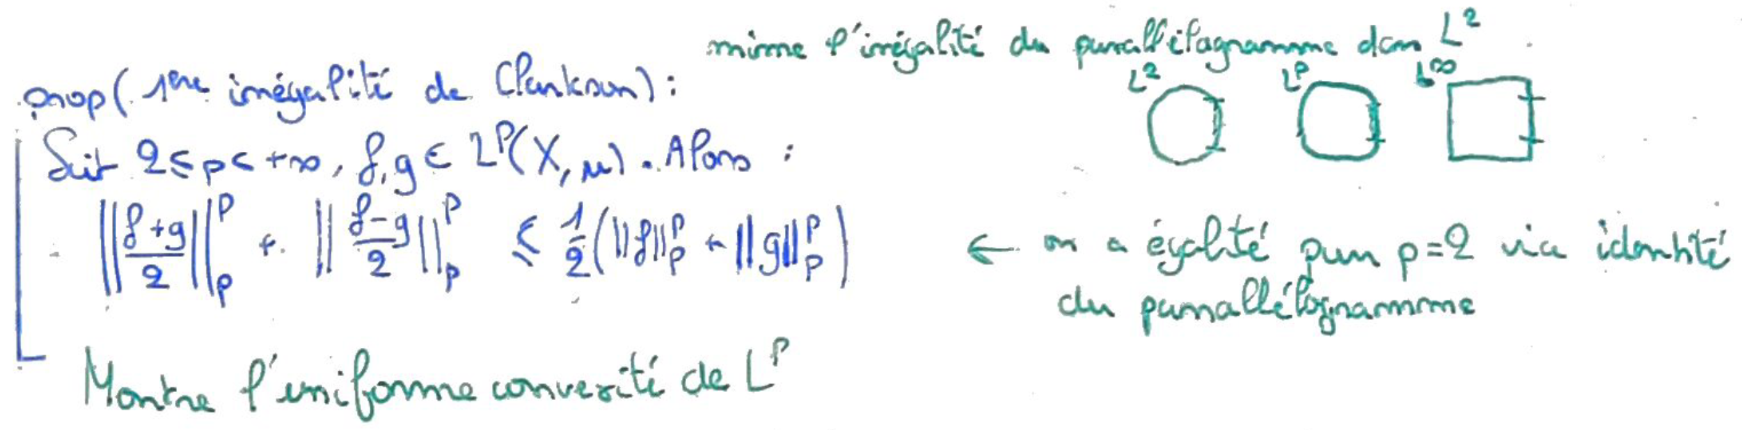 mime l'inégalité du parallélogramme dans L²
prop (1ère inégalité de Clarkson) :
L² L^p L^∞
Soit 2 ≤ p < +∞, f, g ∈ L^p(X, μ). Alors :
||(f+g)/2||_p^p + ||(f-g)/2||_p^p ≤ 1/2 (||f||_p^p + ||g||_p^p)
← on a égalité pour p=2 via identité
du parallélogramme
Montre l'uniforme convexité de L^p